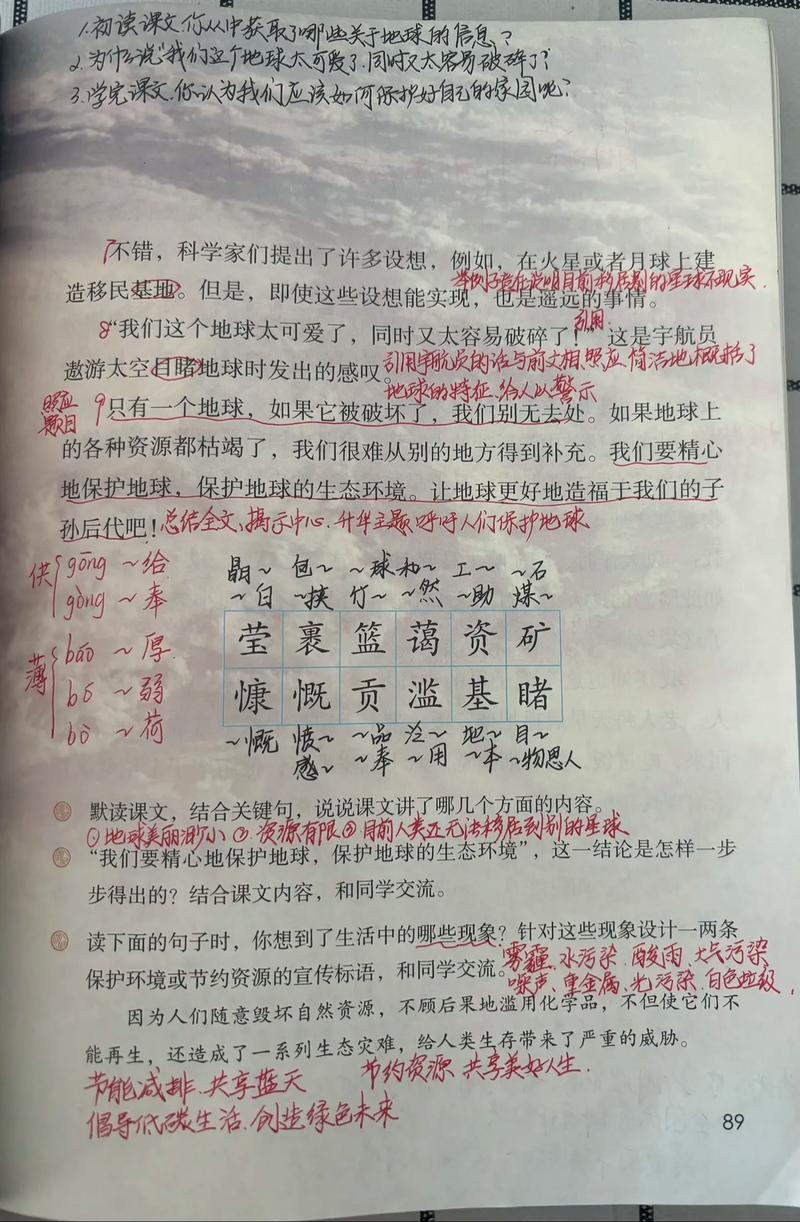 1.初读课文,你从中获取了哪些关于地球的信息?
2.为什么说“我们这个地球太可爱了,同时又太容易破碎了?
3.学完课文,你认为我们应该如何保护好自己的家园呢?
7不错，科学家们提出了许多设想，例如，在火星或者月球上建
举例子旨在说明目前移居别的星球不现实.
造移民基地。但是，即使这些设想能实现，也是遥远的事情。
引用.
8“我们这个地球太可爱了，同时又太容易破碎了！”这是宇航员
遨游太空目睹地球时发出的感叹。
引用宇航员的话与前文相照应,简洁地概括了
地球的特征,给人以警示
照应
题目
9只有一个地球，如果它被破坏了，我们别无去处。如果地球上
的各种资源都枯竭了，我们很难从别的地方得到补充。我们要精心
地保护地球，保护地球的生态环境。让地球更好地造福于我们的子
孙后代吧！
总结全文、揭示中心、升华主题,呼吁人们保护地球
供
gōng ～给
gòng ～奉
薄
báo ～厚.
bó ～弱
bò ～荷
晶～ 包～ ～球 和～ 工～ ～石
～白 ～挟 竹～ ～然 ～助 煤～
莹 裹 篮 蔼 资 矿
慷 慨 贡 滥 基 睹
～慨 愤～ ～品 泛～ 地～ 目～
感～ ～奉 ～用 ～本 ～物思人
默读课文，结合关键句，说说课文讲了哪几个方面的内容。
①地球美丽渺小 ②资源有限 ③目前人类还无法移居到别的星球
“我们要精心地保护地球，保护地球的生态环境”，这一结论是怎样一步
步得出的？结合课文内容，和同学交流。
读下面的句子时，你想到了生活中的哪些现象？针对这些现象设计一两条
保护环境或节约资源的宣传标语，和同学交流。
雾霾、水污染、酸雨、大气污染
噪声、重金属、光污染、白色垃圾.
因为人们随意毁坏自然资源，不顾后果地滥用化学品，不但使它们不
能再生，还造成了一系列生态灾难，给人类生存带来了严重的威胁。
节能减排、共享蓝天
节约资源 共享美好人生.
倡导低碳生活、创造绿色未来
89